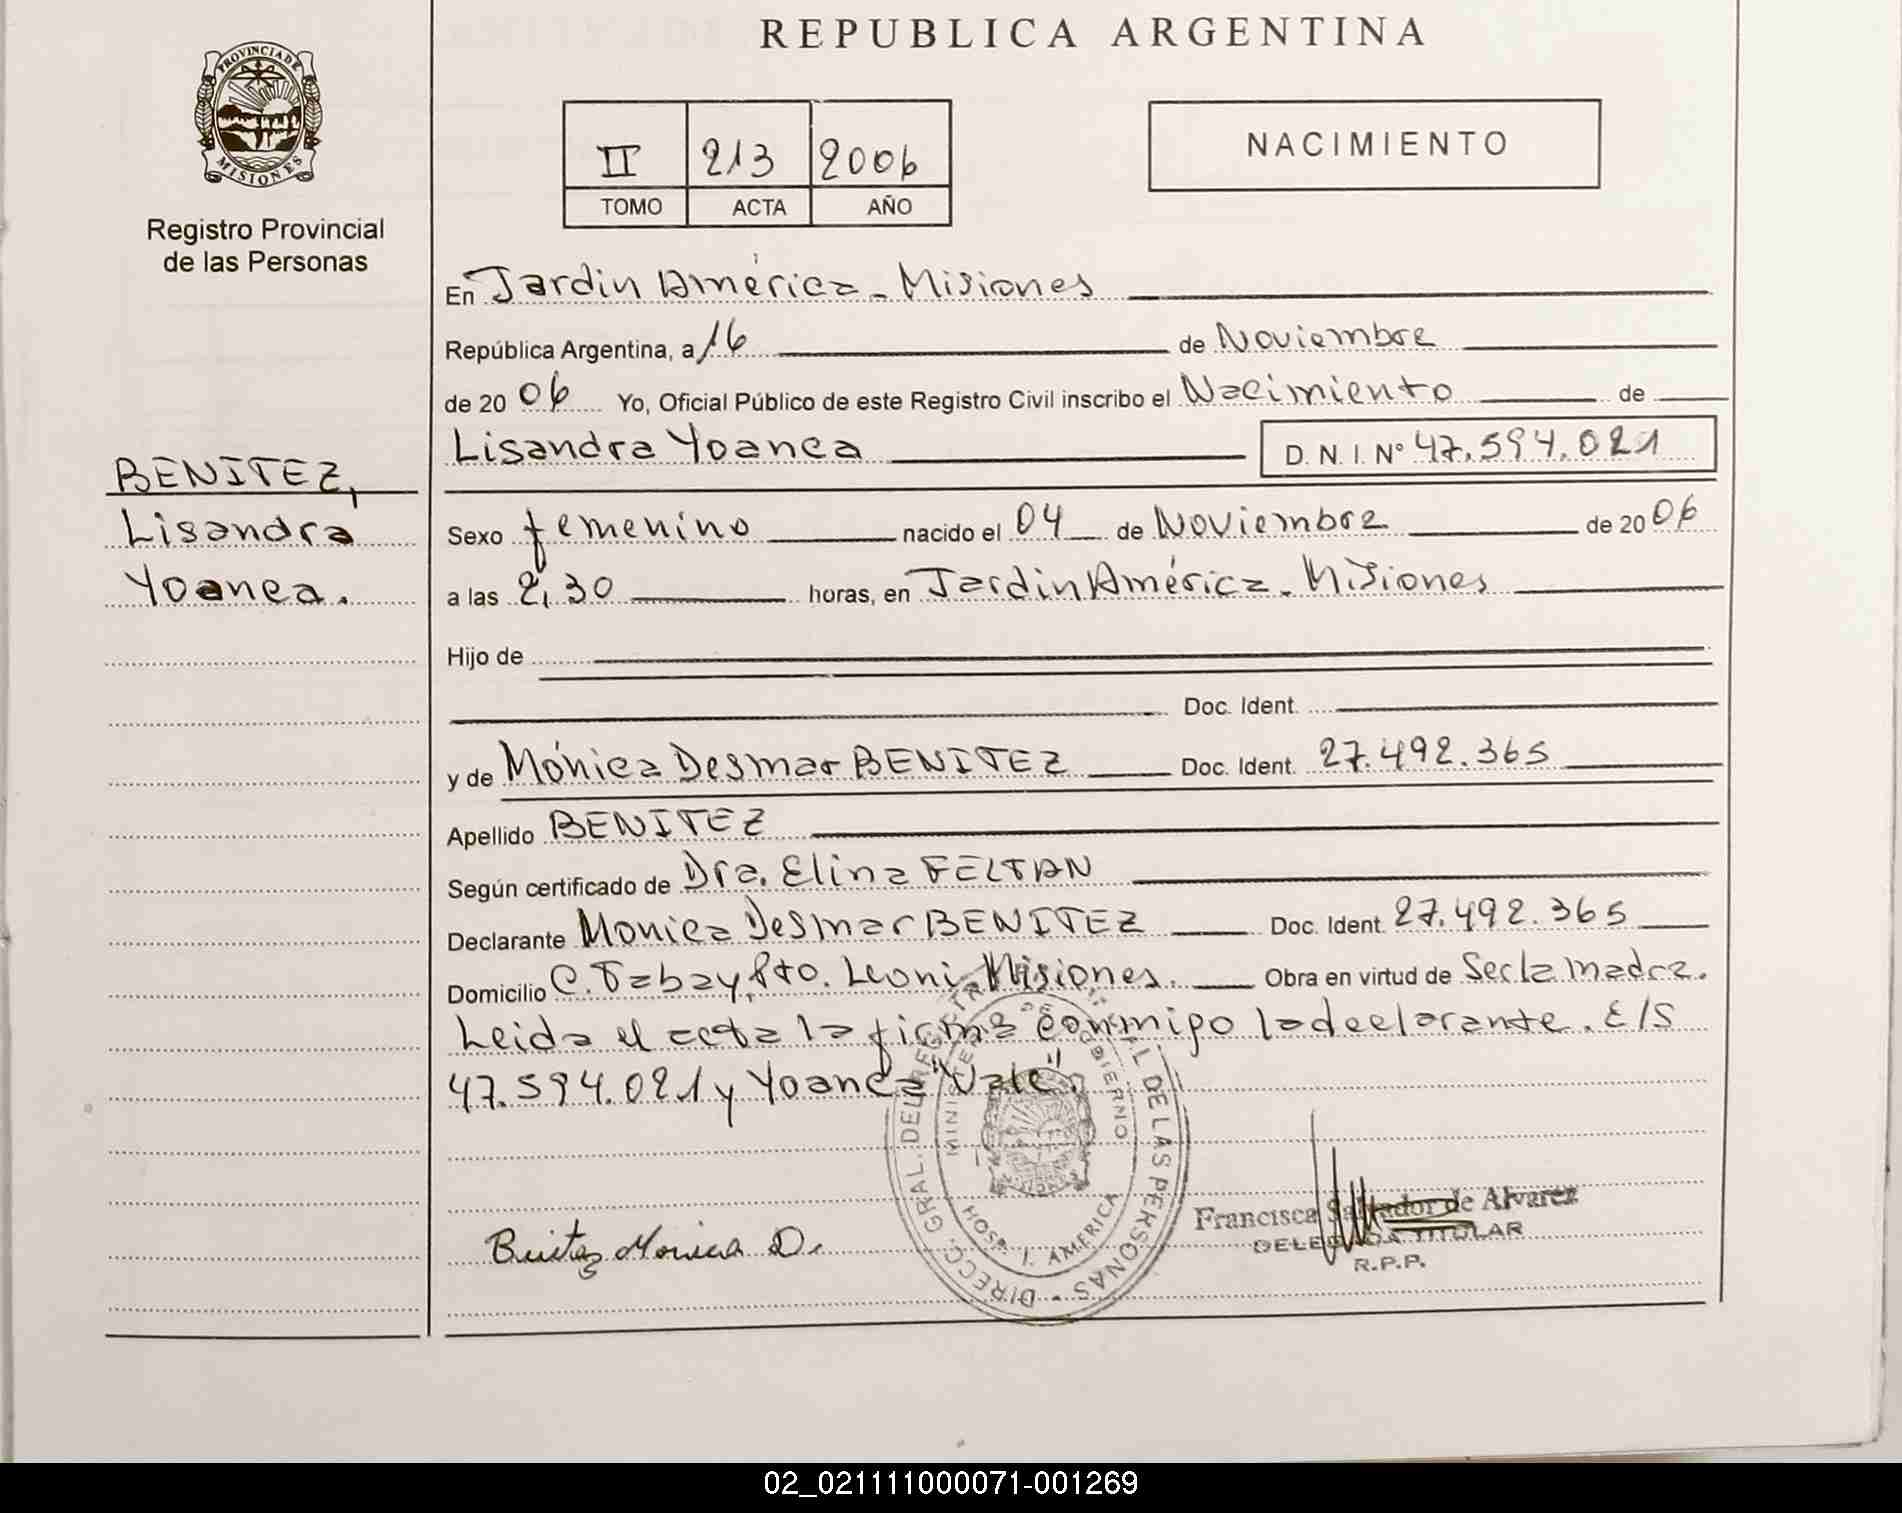 REPUBLICA ARGENTINA
PROVINCIA DE
MISIONES
Registro Provincial
de las Personas
II 213 2006
TOMO ACTA AÑO
NACIMIENTO
En Jardin América - Misiones
República Argentina, a 16 de Noviembre
de 20 06 Yo, Oficial Público de este Registro Civil inscribo el Nacimiento de
Lisandra Yoanea D. N. I. Nº 47.594.021
BENITEZ,
Lisandra
Yoanea.
Sexo femenino nacido el 04 de Noviembre de 20 06
a las 2,30 horas, en Jardin América - Misiones
Hijo de
Doc. Ident.
y de Mónica Desmar BENITEZ Doc. Ident. 27.492.365
Apellido BENITEZ
Según certificado de Dra. Elina FELTAN
Declarante Monica Desmar BENITEZ Doc. Ident. 27.492.365
Domicilio C. Tabay, Pto. Leoni, Misiones. Obra en virtud de Ser la madre.
Leida el acta la firma conmigo la declarante. E/S
47.594.021 y Yoanea "Vale".
DIRECC. GRAL. DEL REGISTRO DE LAS PERSONAS
MINISTERIO DE GOBIERNO
HOSP. J. AMERICA
Benitez Monica D.
Francisca Salvador de Alvarez
DELEGADA TITULAR
R.P.P.
02_021111000071-001269